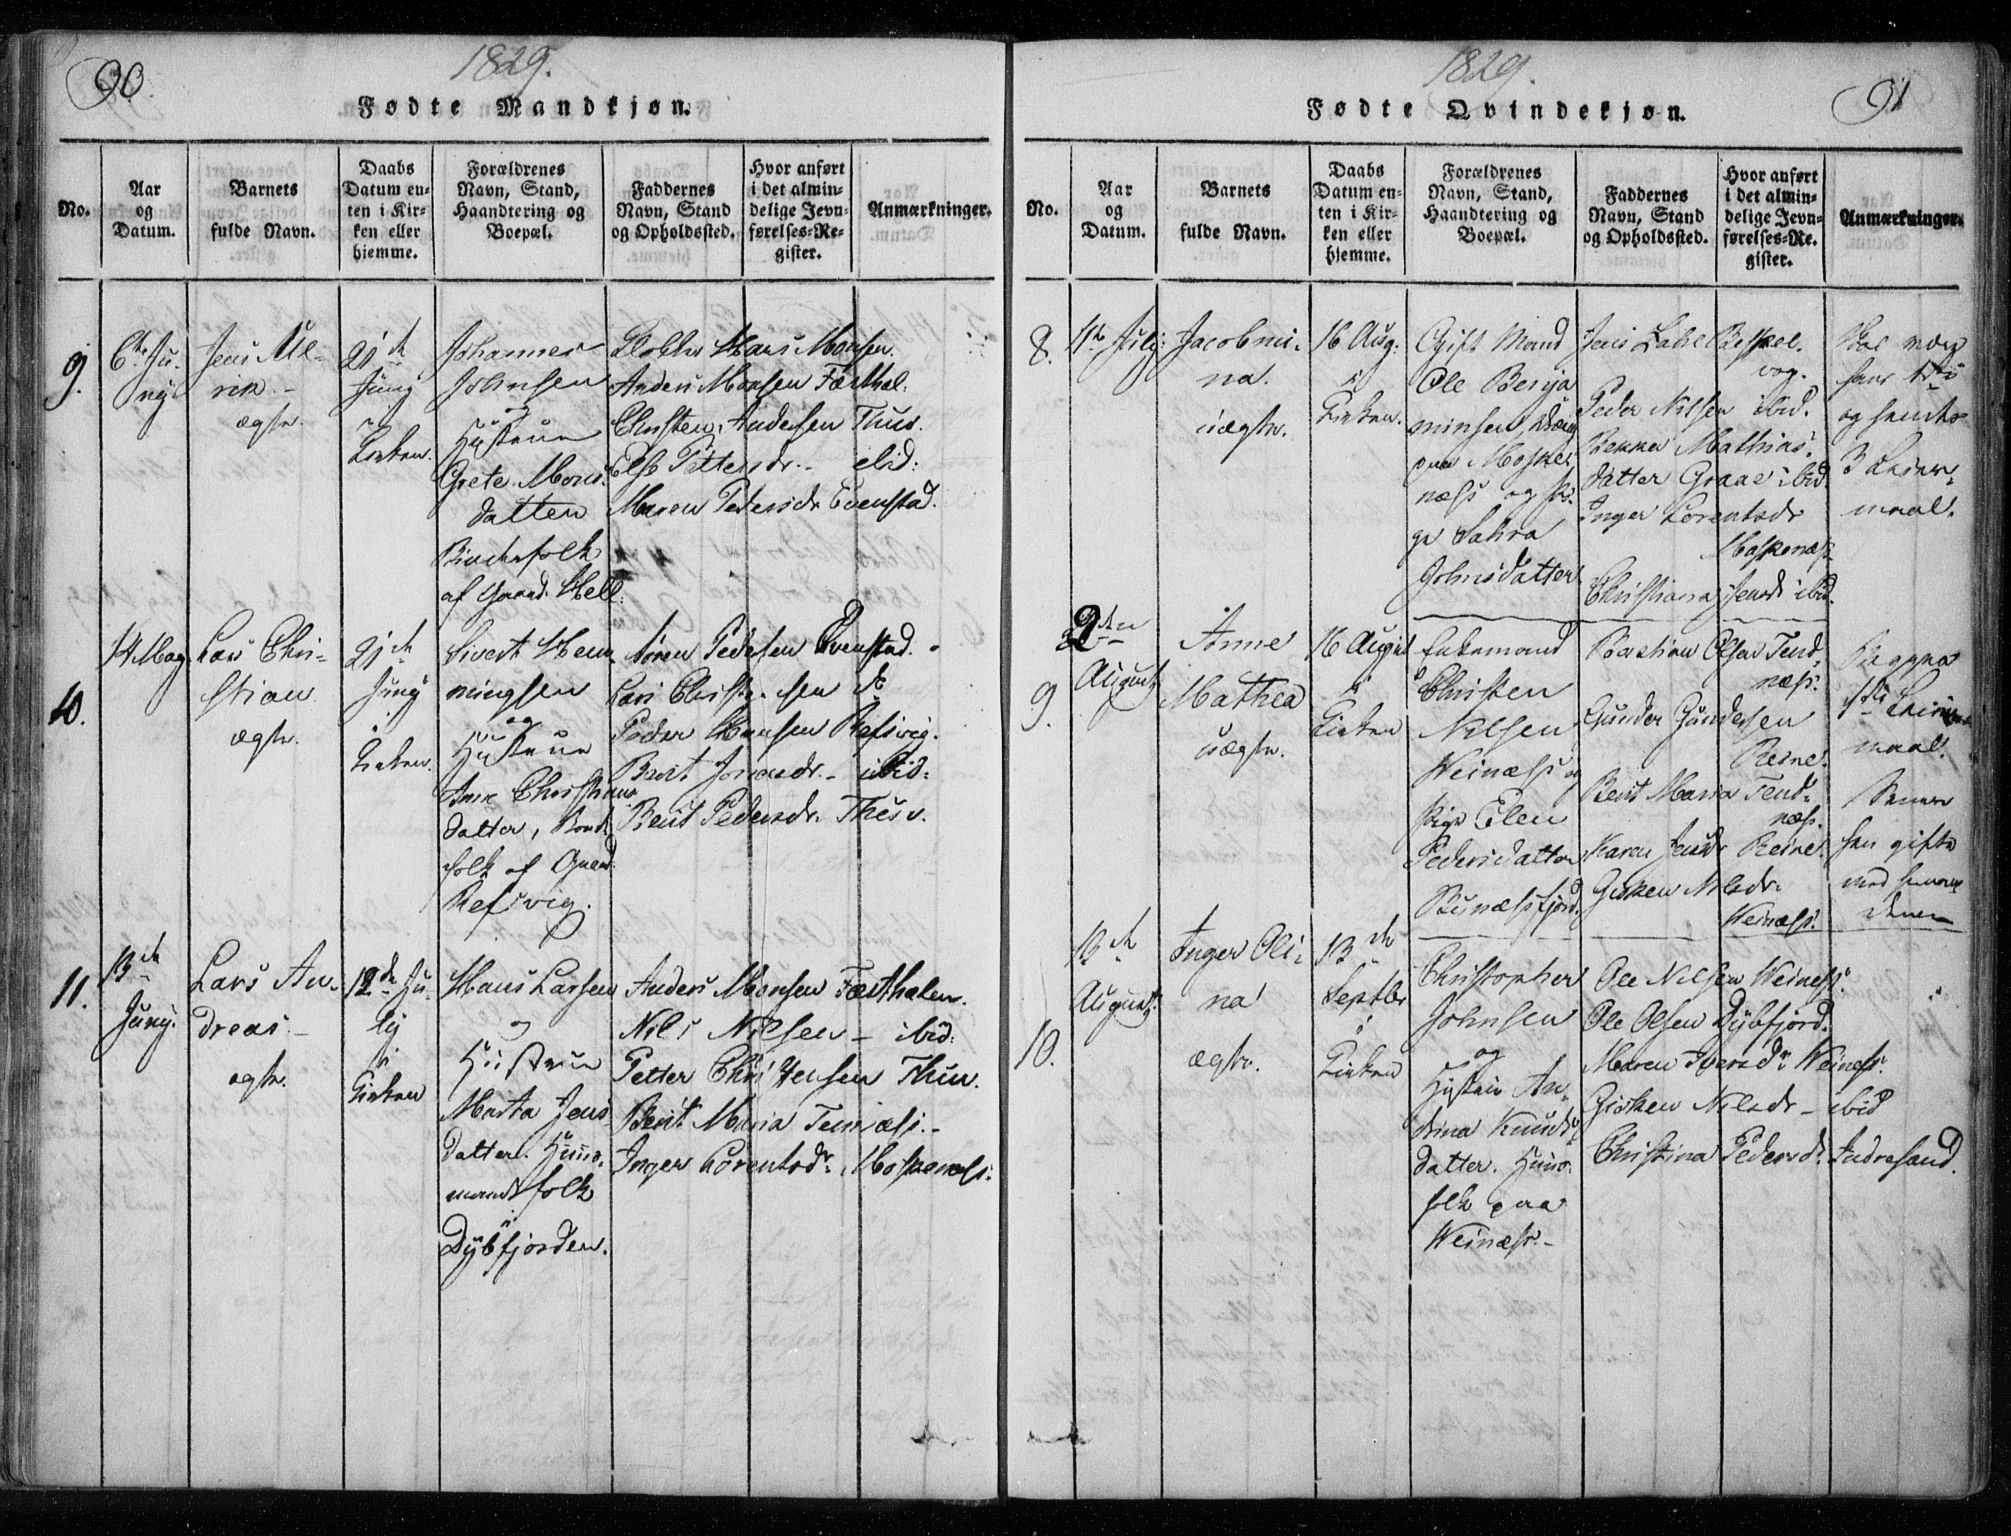 90.
1829.
Fødte Mandkjøn.
No.
Aar
og
Datum.
Barnets
fulde Navn.
Daabs
Datum en-
ten i Kir-
ken eller
hjemme.
Forældrenes
Navn, Stand,
Haandtering og
Boepæl.
Faddernes
Navn, Stand
og Opholdssted.
Hvor anført
i det almin-
delige Jevn-
førelses-Re-
gister.
Anmærkninger.
9.
6te Ju-
ny
Jens Ul-
rik.
ægte.
21de
Juny
i
Kirken.
Johannes
Johnsen
og
Hustrue
Grete Mons-
datter
af Gaard. Hell.
Hans Monsen.
Anders Monsen Færthal.
Christen Andersen Thus.
Else Pettersdr. ibid:
Maren Pedersdr Evenstad.
10.
14 May
Lars Chri-
stian
ægte.
21de
Juny
i
Kirken.
Sivert Hem-
mingsen
og
Hustrue
Ane Christians-
datter, Bonde-
folk af Gaard.
Refsvig.
Søren Pedersen Evenstad.
Lars Christensen
Peder Hansen Refsvig.
Berit Jonasdr. ibid:
Berit Pedersdr. Thus.
11.
13de
Juny.
Lars An-
dreas
ægte.
12de Ju-
ly
i
Kirken
Hans Larsen
og
Hustrue
Marta Jens-
datter. Huus-
mandsfolk
Dybfjorden.
Anders Monsen Færthalen.
Nils Nilsen - ibid:
Petter Christensen Thus.
Berit Maria Tennæs.
Inger Lorentsdr. Moskenæs.
91
1829.
Fødte Qvindekjøn.
No.
Aar
og
Datum.
Barnets
fulde Navn.
Daabs
Datum en-
ten i Kir-
ken eller
hjemme.
Forældrenes
Navn, Stand,
Haandtering og
Boepæl.
Faddernes
Navn, Stand
og Opholdssted.
Hvor anført
i det almin-
delige Jevn-
førelses-Re-
gister.
Anmærkninger.
8.
July
Jacobmi-
na.
uægte.
16 Aug.
i
Kirken.
Gift Mand
Ole Benja
minsen
paa Moske-
næss og Pi-
ge Sahra
Johnsdatter
Jens
Peder Nilsen ibid.
Mathias-
datter Graae ibid.
Inger Lorentsdr
Moskenæs
Christiana Jensdr ibid.
og
3
maal.
9.
2den
August
Anne
Mathea
uægte.
16 August
i
Kirken
Enkemand
Christen
Nilsen
Weinæss og
Pige Elen
Pedersdatter
Bunæssfjord.
Bastian Olsen Tend-
næs.
Gunder Gundersen
Reine.
Berit Maria Tend-
næs.
Karen Jensdr Reine.
Gisken Nilsdr.
Weinæss.
maal.
gifte
med
10.
August.
Inger Oli-
na
ægte.
13de
Septbr
i
Kirken
Christopher
Johnsen
og
Hustrue An-
drina Knuds-
datter. Huus-
folk paa
Weinæss.
Ole Nilsen Weiness.
Ole Olsen Dybfjord.
Maren Iversdr Weiness.
Gisken Nilsdr - ibid
Christina Pedersdr. Indresand.